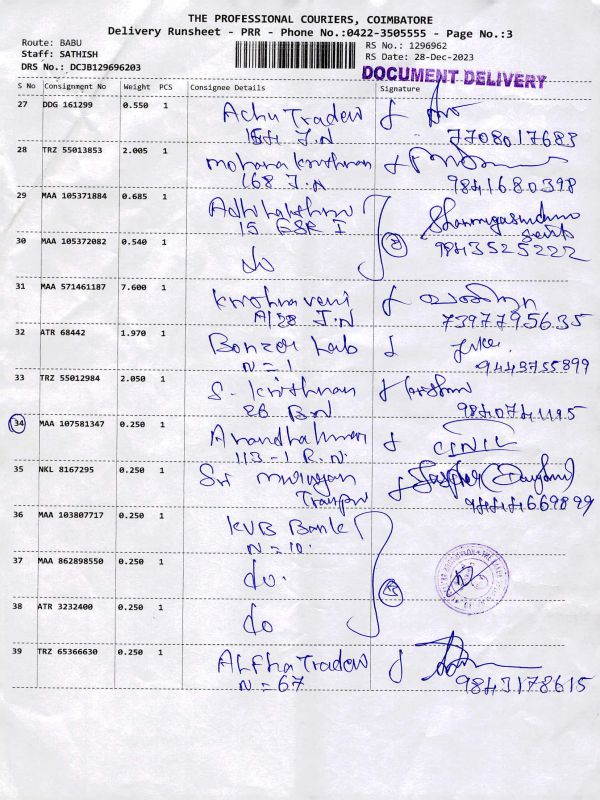 THE PROFESSIONAL COURIERS, COIMBATORE
Delivery Runsheet - PRR - Phone No.:0422-3505555 - Page No.:3
Route: BABU
Staff: SATHISH
DRS No.: DCJB129696203
RS No.: 1296962
RS Date: 28-Dec-2023
DOCUMENT DELIVERY
S No Consignment No Weight PCS Consignee Details Signature
27 DDG 161299 0.550 1 Achu Traders
J.N 7708017683
28 TRZ 55013853 2.005 1 mohana krishnan
168 J.N 9841680398
29 MAA 105371884 0.685 1 Adhilakshmi
15 GSR I
30 MAA 105372082 0.540 1 do 9843525222
31 MAA 571461187 7.600 1 Krishnaveni
A/28 J.N 7397795635
32 ATR 68442 1.970 1 Bonzer Lab
N=1 9443755899
33 TRZ 55012984 2.050 1 S. Krithnan
26 BN 9840741195
34 MAA 107581347 0.250 1
113-1 R.N.
35 NKL 8167295 0.250 1 Sri murugan
9444669899
36 MAA 103807717 0.250 1 KVB Bank
N=10.
37 MAA 862898550 0.250 1 do.
38 ATR 3232400 0.250 1 do
39 TRZ 65366630 0.250 1 Alfha Traders
N=67 9843178615